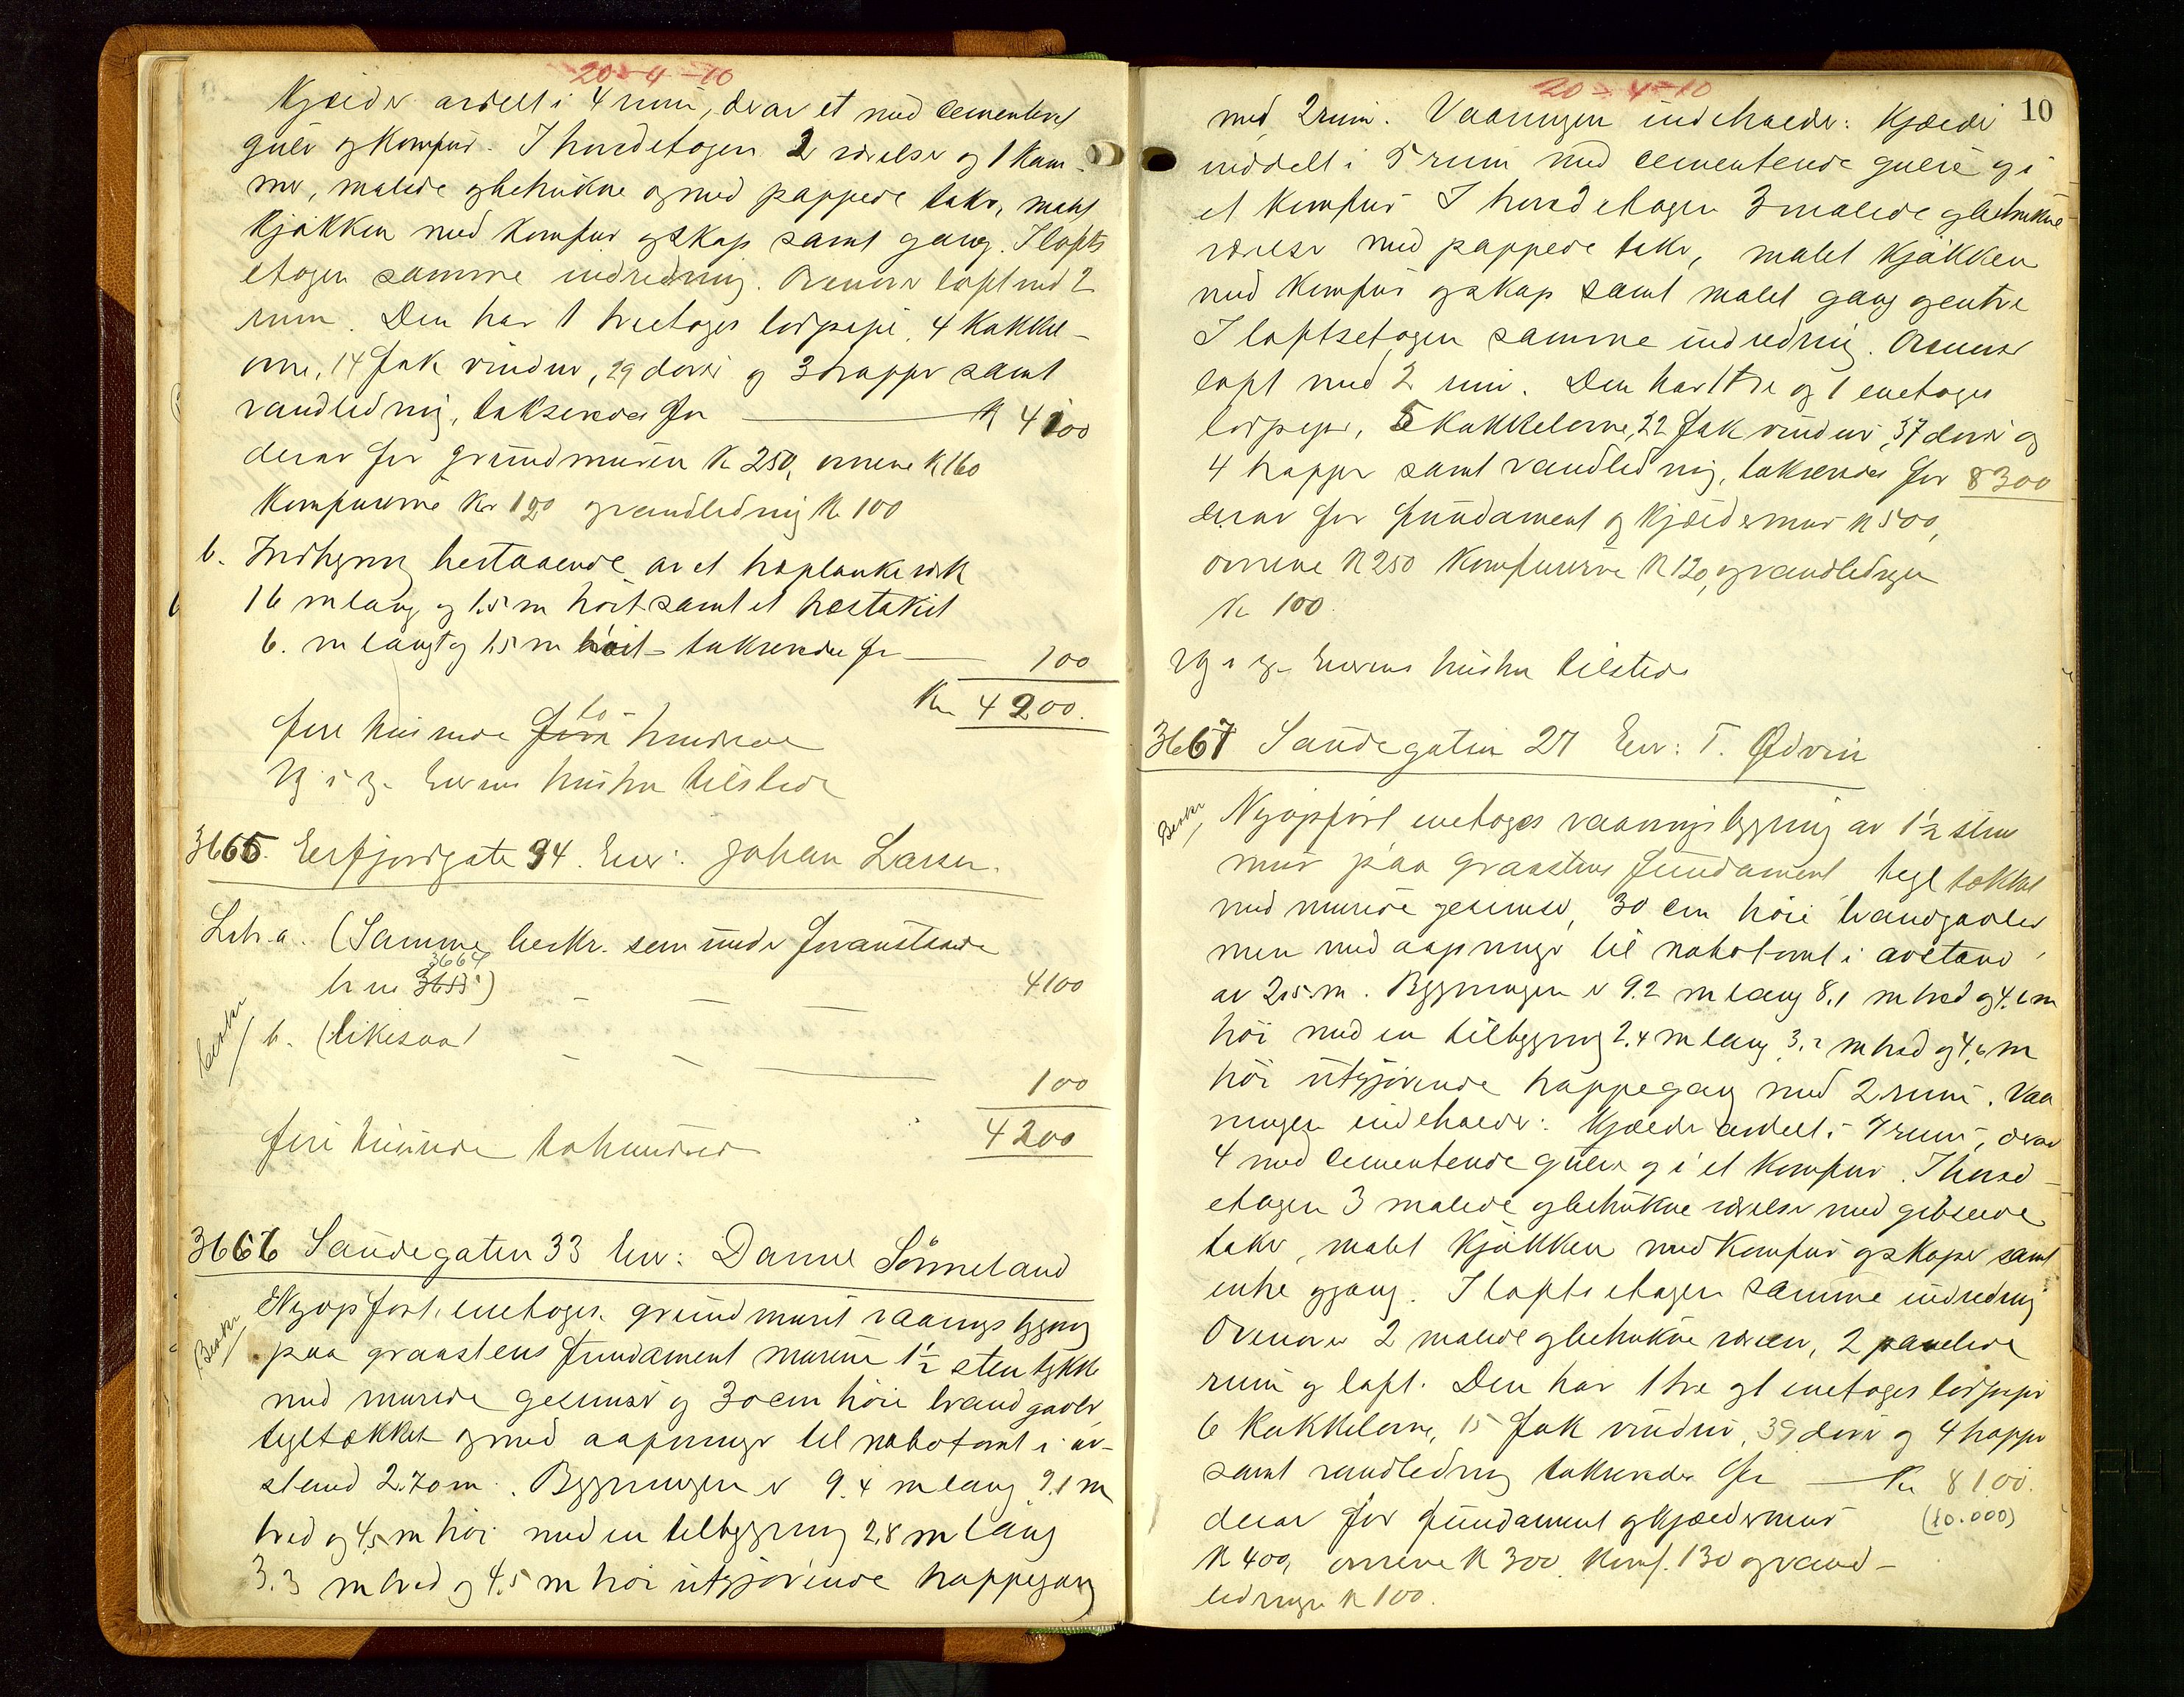 20-4-10
Kjælder avdelt i 4 rum, derav et med cementeret
gulv og komfur. I hovedetagen 2 værelser og 1 kam-
mer, malede og betrukne og med pappede taker, malet
kjøkken med komfur og skap samt gang. I lofts
etagen samme indredning. Ovenover loft med 2
rum. Den har 1 treetages lodpipe, 4 kakkel-
ovne, 14 fak vinduer, 29 dører og 3 trapper samt
vandledning, takseredes for K 4100
derav for grundmuren K 250, ovnene K 160
komfurerne Kr 120 og vandledning K 100
b. Indhegning bestaaende av et træplankeverk
16 m lang og 1.5 m høit samt et træstakit
6. m langt og 1.5 m høit - takseredes for 100
Kr 4200.
fire tusinde to hundrede
Vg i Eg. Eierens hustru tilstede
3665. Erfjordgate 94. Eier: Johan Larsen.
Litr. a. (Samme beskr. som under foranstaaende
br no 3664) 4100
Beskr
b. (likesaa) 100
4200
fire tusinde tohundrede
3666 Sandegaten 33 Eier: Daniel Sømmeland
Beskr
Nyopført enetages grundmuret vaaningsbygning
paa graastens fundament murene 1½ sten tykke
med murede gesimser og 30 cm høie brandgavler
tegltækket og med aapninger til nabotomt i av-
stand 2.70 m. Bygningen er 9.4 m lang 9.1 m
bred og 4.5 m høi med en tilbygning 2.8 m lang
3.3 m bred og 4.5 m høi utgjørende trappegang
20-4-10
10
med 2 rum. Vaaningen indeholder: Kjælder
inddelt i 5 rum med cementerede gulve og i
et komfur I hovedetagen 3 malede og betrukne
værelser med pappede taker, malet kjøkken
med komfur og skap samt malet gang og entre
I loftsetagen samme indredning. Ovenover
loft med 2 rum. Den har 1 tre og 1 enetages
lodpiper, 5 kakkelovne, 22 fak vinduer, 37 dører og
4 trapper samt vandledning, takseredes for 8300
derav for fundament og kjældermur K 500,
ovnene K 250 komfurerne K 120, og vandledningen
K 100.
Vg i Eg. Eierens hustru tilstede
3667 Sandegaten 27 Eier: T. Ødvin
Beskr
Nyopført enetages vaaningsbygning av 1½ sten
mur paa graastens fundament tegltækket
med murede gesimser, 30 cm høie brandgavler
men med aapninger til nabotomt i avstand
av 2.5 m. Bygningen er 9.2 m lang 8.1 m bred og 4.6 m
høi med en tilbygning 2.4 m lang 3.2 m bred og 4.6 m
høi utgjørende trappegang med 2 rum. Vaa
ningen indeholder: Kjælder avdelt i 7 rum, derav
4 med cementerede gulve og i et komfur. I hoved-
etagen 3 malede og betrukne værelser med gibsede
taker, malet kjøkken med komfur og skaper samt
entre og gang. I loftsetagen samme indredning
Ovenover 2 malede og betrukne værelser, 2 panelede
rum og loft. Den har 1 tre og 1 enetages lodpiper
6 kakkelovne, 15 fak vinduer, 39 dører og 4 trapper
samt vandledning takseredes for Kr 8100.
derav for fundament og kjældermur (10.000)
K 400, ovnene K 300 Komf. 130 og vand-
ledningen K 100.